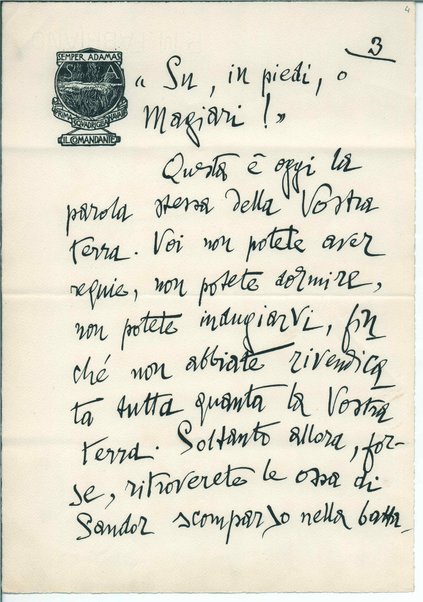 4
3
SEMPER ADAMAS
S A
IL COMANDANTE
« Su, in piedi, o
Magiari! »
Questa è oggi la
parola stessa della Vostra
terra. Voi non potete aver
requie, non potete dormire,
non potete indugiarvi, fin
ché non abbiate rivendica
ta tutta quanta la Vostra
terra. Soltanto allora, for-
se, ritroverete le ossa di
Sandor scomparso nella batta-